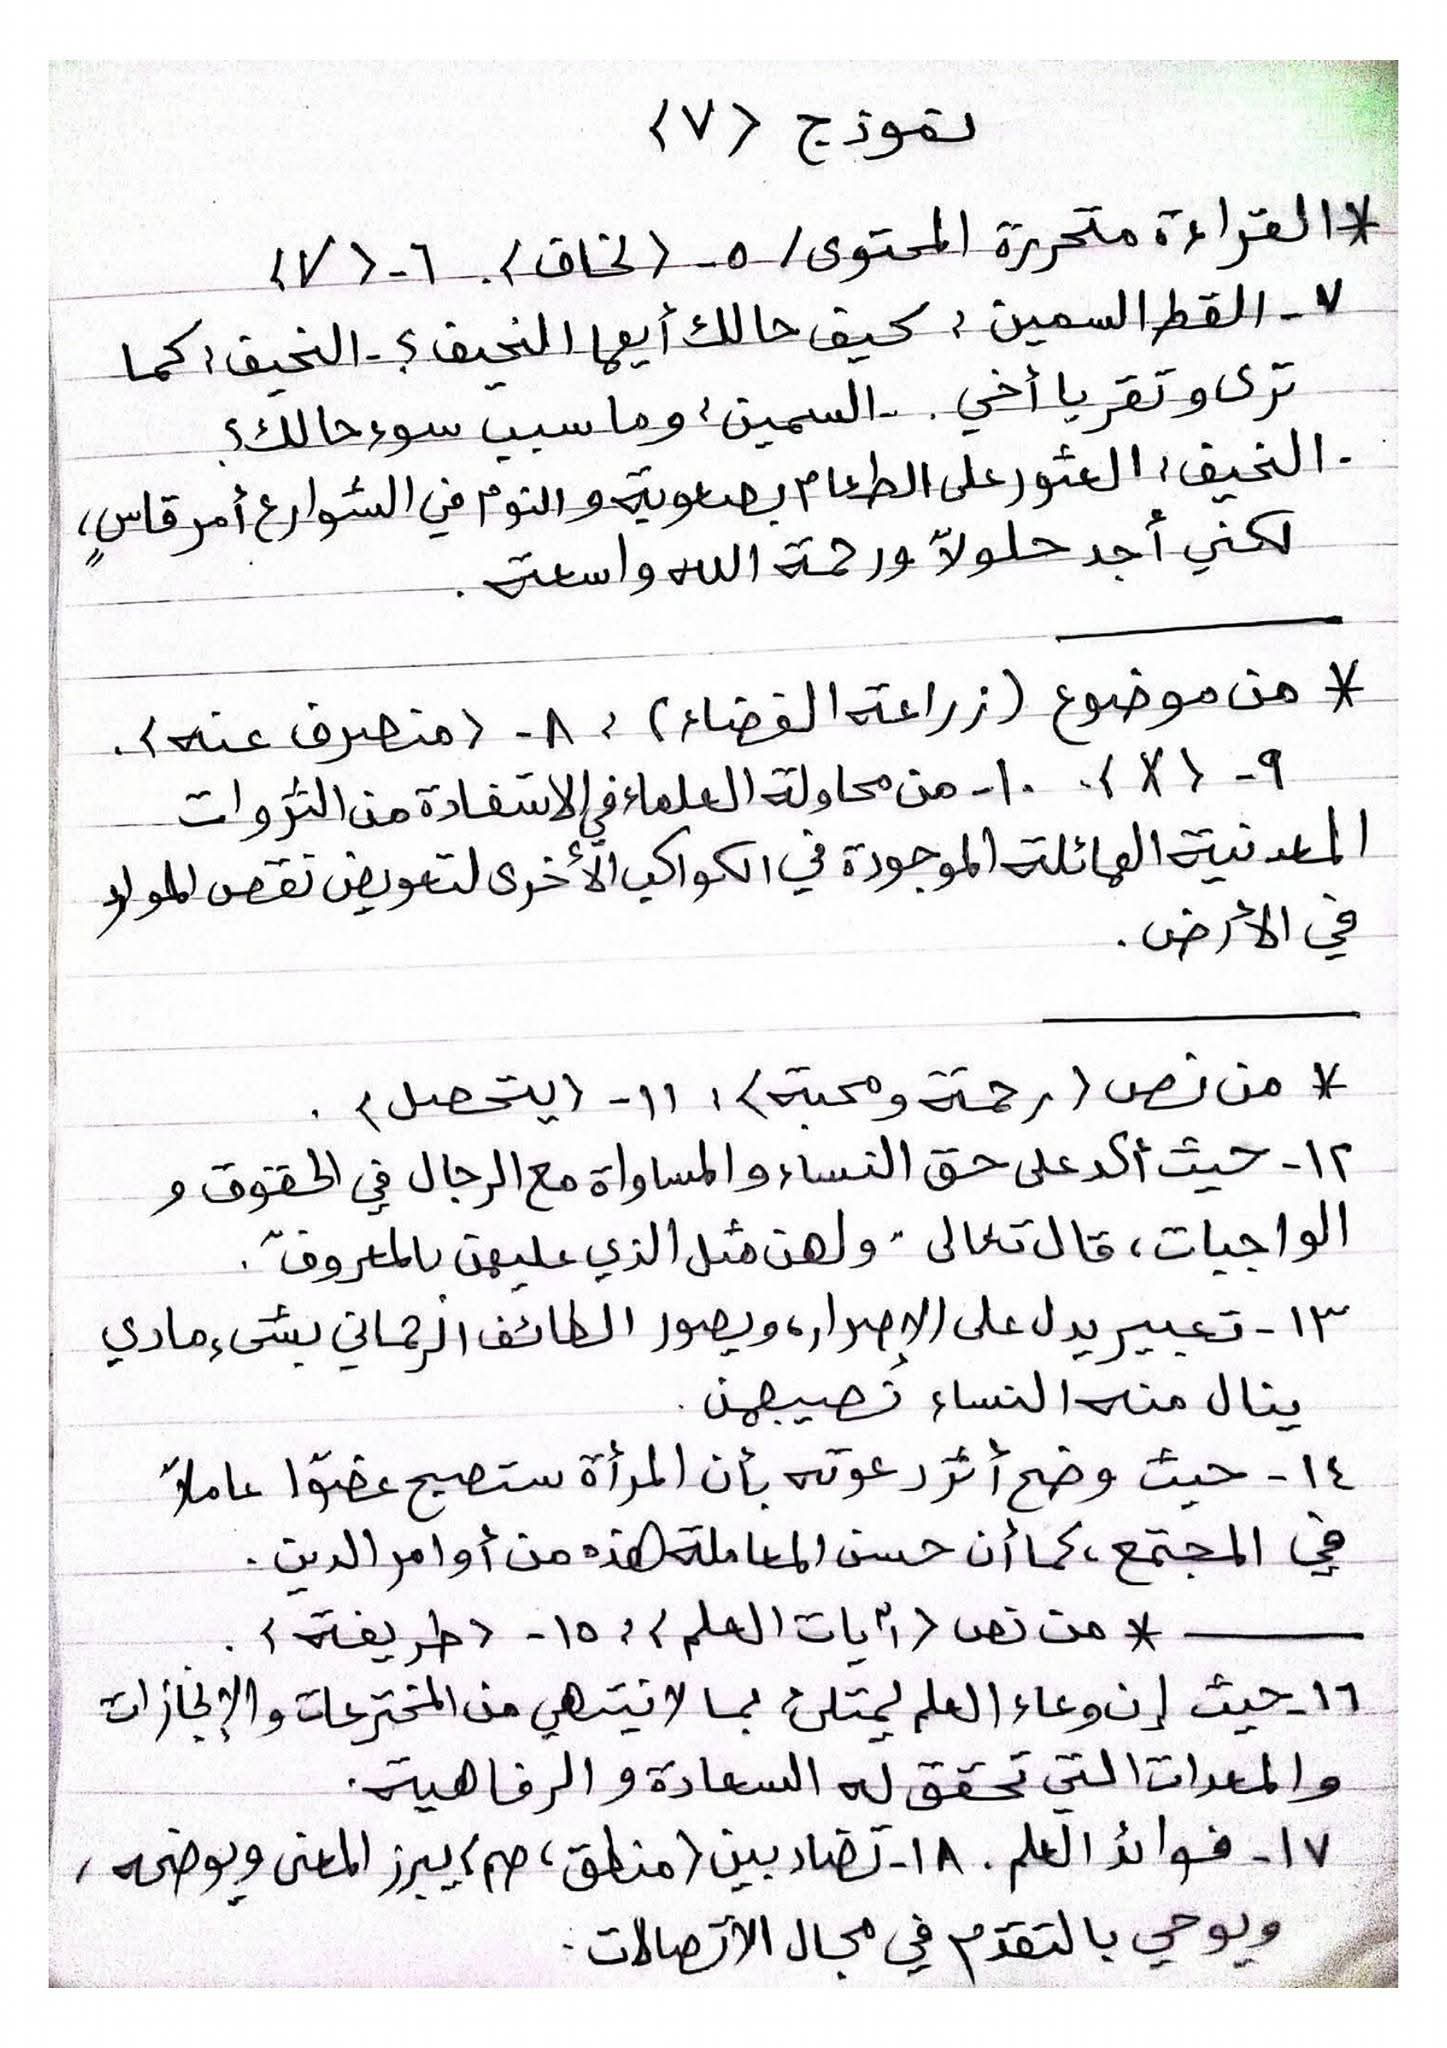 نموذج (٧)
* القراءة متحررة المحتوى / ٥- (نخاف). ٦- (√)
٧- القط السمين: كيف حالك أيها النحيف؟ - النحيف: كما
ترى وتقر يا أخي. - السمين: وما سبب سوء حالك؟
- النحيف: العثور على الطعام بصعوبة والنوم في الشوارع أمر قاسٍ،
لكني أجد حلولاً ورحمة الله واسعة.
* من موضوع (زراعة الفضاء): ٨- (منصرف عنه).
٩- (X). ١٠- من محاولة العلماء في الاستفادة من الثروات
المعدنية الهائلة الموجودة في الكواكب الأخرى لتعويض نقص الموارد
في الأرض.
* من نص (رحمة ومحبة): ١١- (يتحصل).
١٢- حيث أكد على حق النساء والمساواة مع الرجال في الحقوق و
الواجبات، قال تعالى "ولهن مثل الذي عليهن بالمعروف".
١٣- تعبير يدل على الإصرار، ويصور الطائف الرحماني بشيء مادي
ينال منه النساء نصيبهن.
١٤- حيث وضح أثر دعوته بأن المرأة ستصبح عضوًا عاملاً
في المجتمع، كما أن حسن المعاملة هذه من أوامر الدين.
* من نص (آيات العلم): ١٥- (طريفة).
١٦- حيث إن وعاء العلم يمتلئ بما لا ينتهي من المخترعات والإنجازات
والمعدات التي تحقق له السعادة والرفاهية.
١٧- فوائد العلم. ١٨- تضاد بين (منطق، صم) يبرز المعنى ويوضحه،
ويوحي بالتقدم في مجال الاتصالات.